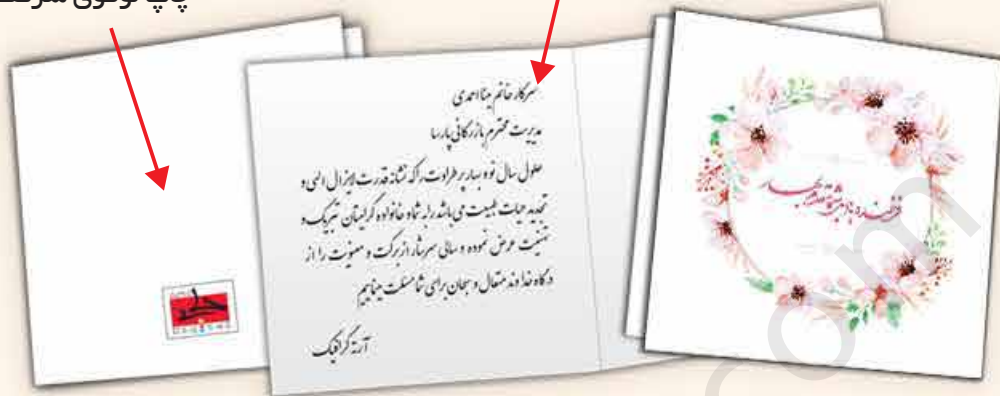 چاپ لوگوی شرکت
سرکار خانم مینا احمدی
مدیریت محترم بازرگانی پارسا
حلول سال نو و بهار پر طراوت را که نشانه قدرت لایزال الهی و
تجدید حیات طبیعت می باشد را به شما و خانواده گرامیتان تبریک و
تهنیت عرض نموده و سالی سرشار از برکت و معنویت را از
درگاه خداوند متعال و سبحان برای شما مسئلت مینماییم
فرخنده باد بهار
com